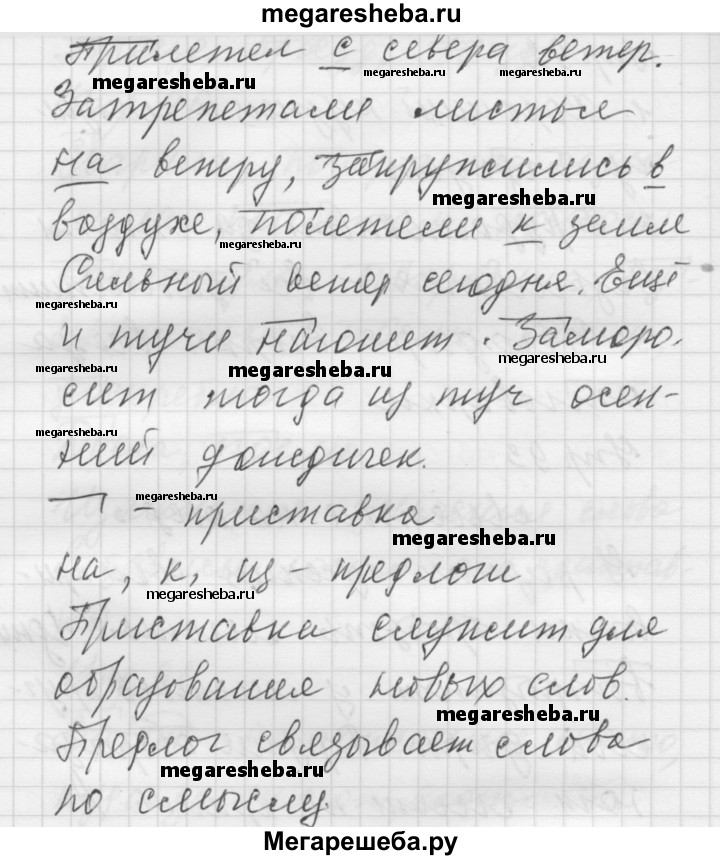 megaresheba.ru
Прилетел с севера ветер.
megaresheba.ru megaresheba.ru megaresheba.ru
Затрепетали листья
на ветру, закружились в
megaresheba.ru
воздухе, полетели к земле
megaresheba.ru
Сильный ветер сегодня. Ещё
megaresheba.ru
и тучи нагонит. Заморо-
megaresheba.ru
megaresheba.ru megaresheba.ru
сит тогда из туч осен-
megaresheba.ru
ний дождичек.
megaresheba.ru
¬ - приставка
megaresheba.ru
на, к, из - предлоги
megaresheba.ru
Приставка служит для
образования новых слов.
megaresheba.ru
Предлог связывает слова
megaresheba.ru
по смыслу.
Мегарешеба.ру